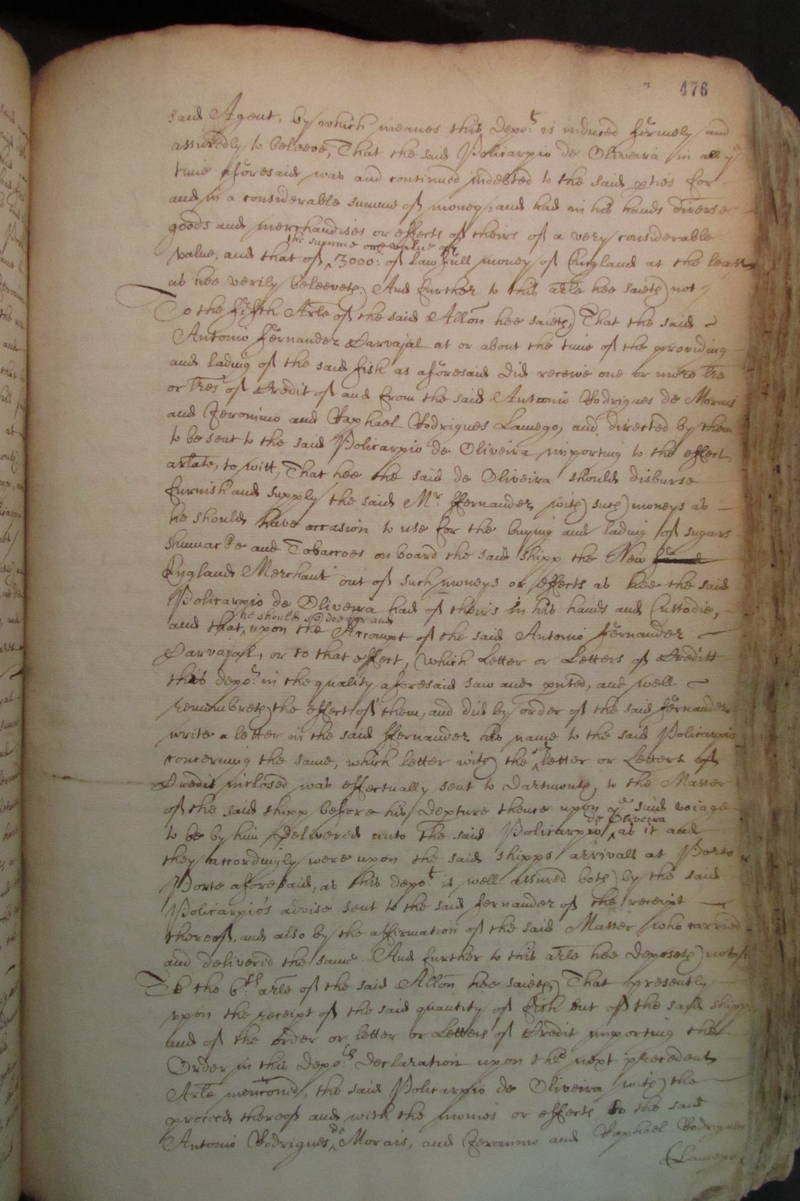 476
said Agent, by which meanes this Depo:t is induced firmely and
assuredly to beleeve, That the said Policarpio de Oliveira in all ye
time aforesaid was and continued indebted to the said pties for
and in a considerable summe of money, and had in his hands diverse
goods and merchandises or effects of theirs of a very considerable
the summe or value of
value, and that of 3000: of lawfull money of England at the least
as hee verily beleeveth, And further to this arle hee saieth not
To the fifth Arle of the said Allon hee saieth, That the said
Antonio Fernandez Carvajal at or about the time of the providing
and lading of the said fish as aforesaid did receive one or more Tre
or Tres of Credit of and from the said Antonio Rodrigues de Morais
and Jeronimo and Raphael Rodrigues Lamego, and directed by them
to be sent to the said Policarpio de Oliveira importing to the effect
arlate, to witt, That hee the said de Oliveira should disburse
furnish and supply the said Mr ffernandez with such moneys as
he should have occasion to use for the buying and lading of sugars
shumacke and Tobaccoes on board the said shipp the New
England Merchant out of such moneys or effects as hee the said
Policarpio de Oliveira had of theirs in his hands and Custodie,
he should soe doe for and
and that, upon the Accompt of the said Antonio Fernandez
Carvajal, or to that effect, (which Letter or Letters of Creditt
this depo:t in the quality aforesaid saw and pused, and well
remembreth the effect of them, and did by order of the said Fernandez
write a letter in the said ffernandez his name to the said Policarpio
concerning the same, which letter with the sd letter or Letters of
Credit inclosed was effectually sent to Dartmouth, to the Master
of the said shipp before his Depture thence upon ye said voiage
de Oliveira
to be by him delivered unto the said Policarpio, as it and
they accordingly were upon the said shipps arrivall at Porto
Porte aforesaid, as this depo:t is well assured both by the said
Policarpio's advise sent to the said fernandez of the receipt
thereof, and also by the affirmation of the said Master who carried
and delivered the same. And further to this arle hee deposeth not
To the 6th arle of the said Allon hee saieth, That presently
upon the receipt of the said quantity of fish out of the said shipp
and of the order or letter or Letters of Credit importing the
Order in this Depo:ts Declaration upon the next precedent
Arle mencioned, the said Policarpio de Oliveira with the
proceed thereof and with the monies or effects to the said
Antonio Rodrigues de Morais, and Jeronimo and Raphael Rodrigues
Lamego